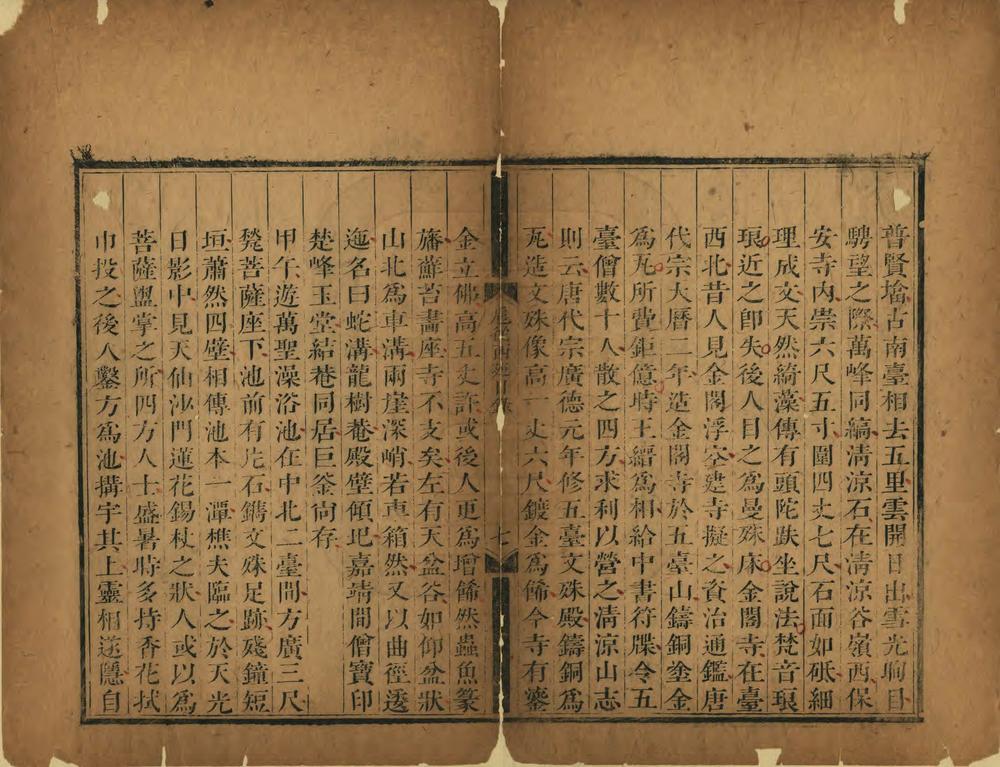 普賢墖古南臺相去五里雲開日出雪光晌目
騁望之際萬峰同縞清涼石在清涼谷嶺西保
安寺內崇六尺五寸圍四丈七尺石面如砥細
理成文天然綺藻傳有頭陀趺坐說法梵音琅
琅近之卽失後人目之爲曼殊床金閣寺在臺
西北昔人見金閣浮空建寺擬之資治通鑑唐
代宗大曆二年造金閣寺於五臺山鑄銅塗金
爲瓦所費鉅億時王縉爲相給中書符牒令五
臺僧數十人散之四方求利以營之清涼山志
則云唐代宗廣德元年修五臺文殊殿鑄銅爲
瓦造文殊像高一丈六尺鍍金爲餙今寺有鎏
七
金立佛高五丈許或後人更爲增餙然蟲魚篆
旛蘚苔畵座寺不支矣左有天盆谷如仰盆狀
山北爲車溝兩崖深峭若車箱然又以曲徑逶
迤名曰蛇溝龍樹菴殿壁傾圮嘉靖間僧寶印
楚峰玉堂結菴同居巨釜尙存
甲午遊萬聖澡浴池在中北二臺間方廣三尺
甃菩薩座下池前有片石鐫文殊足跡殘鐘短
垣蕭然四壁相傳池本一潭樵夫臨之於天光
日影中見天仙沙門蓮花錫杖之狀人或以爲
菩薩盥掌之所四方人士盛暑時多持香花拭
巾投之後人鑿方爲池搆宇其上靈相遂隱自